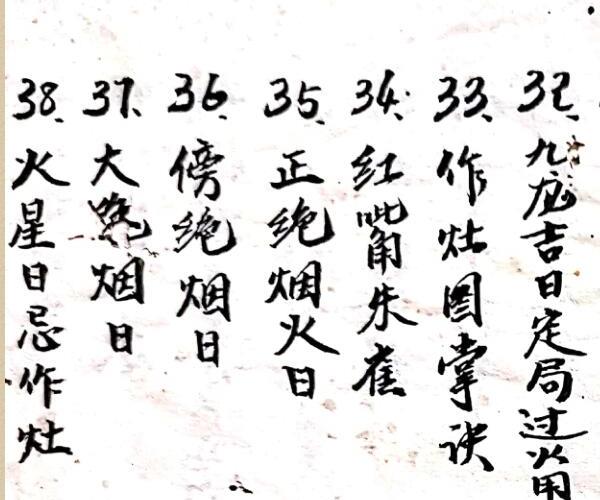 32、九龙吉日定局过火用
33、作灶图掌诀
34、红嘴朱雀
35、正绝烟火日
36、傍绝烟日
37、大绝烟日
38、火星日忌作灶